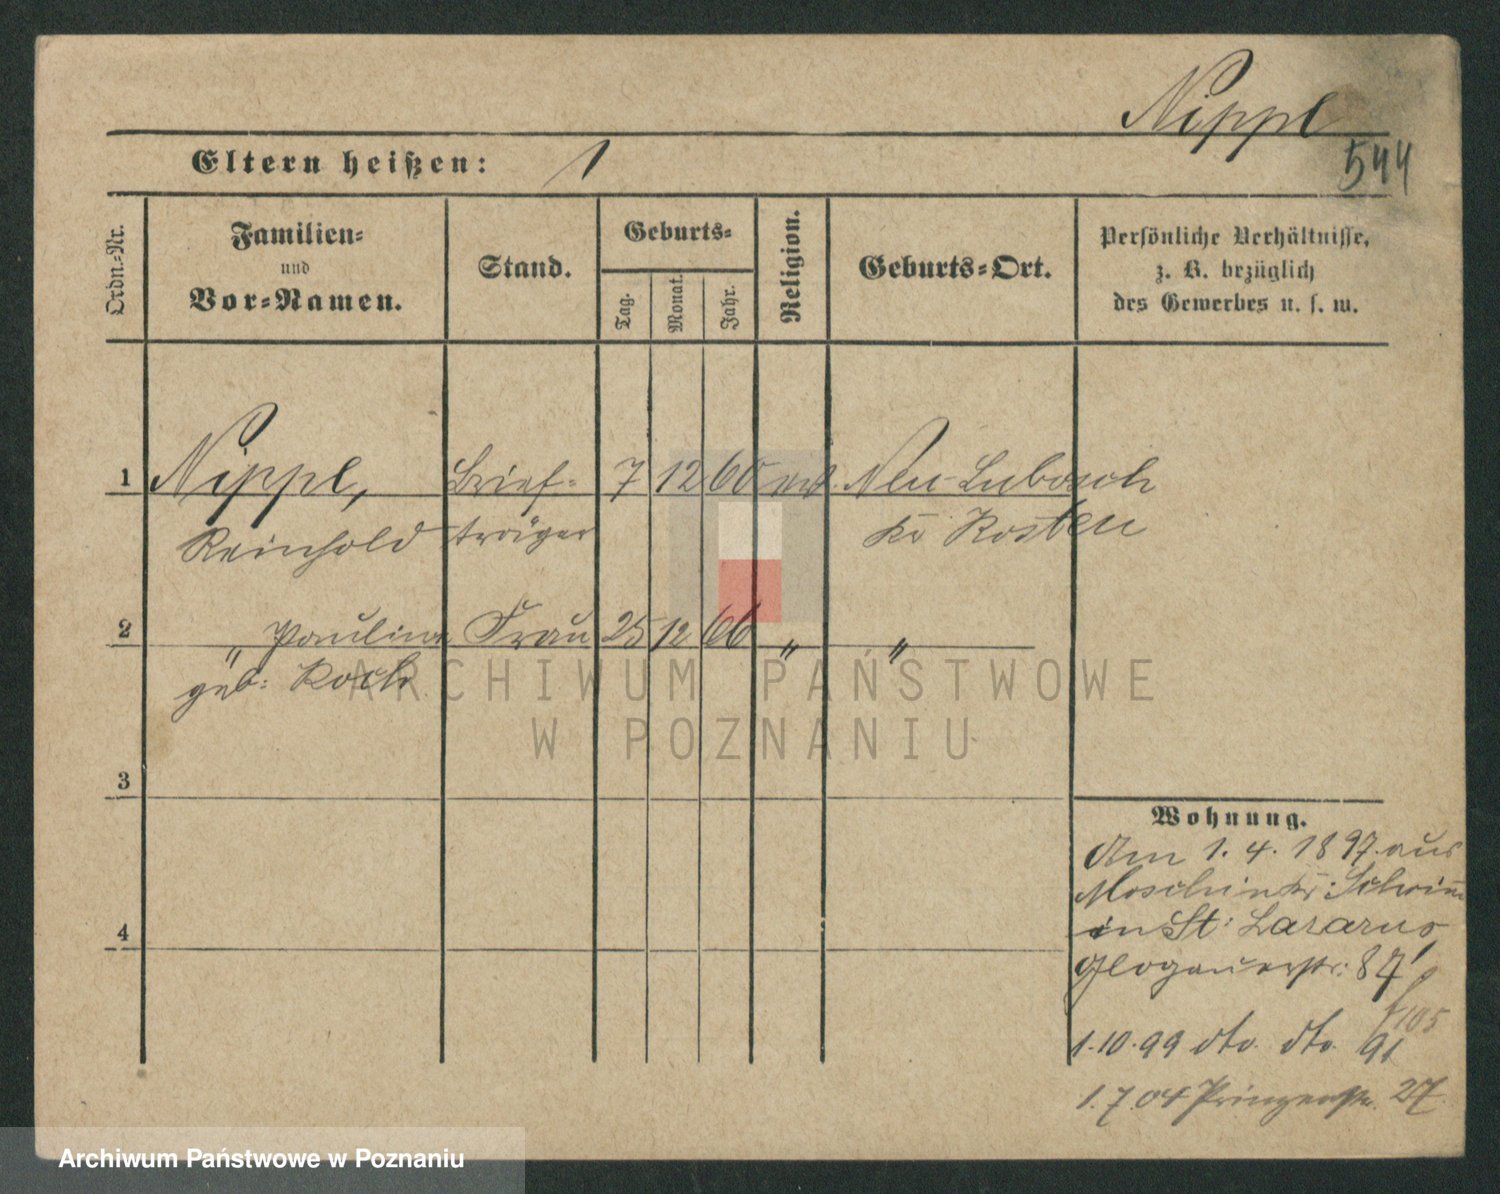 Nippl
544
Eltern heißen: 1
Ordn.-Nr.
Familien-
und
Vor-Namen.
Stand.
Geburts-
Tag.
Monat.
Jahr.
Religion.
Geburts-Ort.
Persönliche Verhältnisse,
z. B. bezüglich
des Gewerbes u. s. w.
1 Nippl, Brief- 7 12 60 Neu Lubosch
Reinhold träger Kr Kosten
2 " Pauline Frau 25 12 66 " "
geb: Koch
ARCHIWUM PAŃSTWOWE
W POZNANIU
3
4
Wohnung.
Am 1. 4. 1897 aus
Moschin Kr: Schrimm
in St: Lazarus
Glogauerstr: 87
105
1.10.99 dto. dto. 91
1.7.04 Prinzenstr. 27.
Archiwum Państwowe w Poznaniu